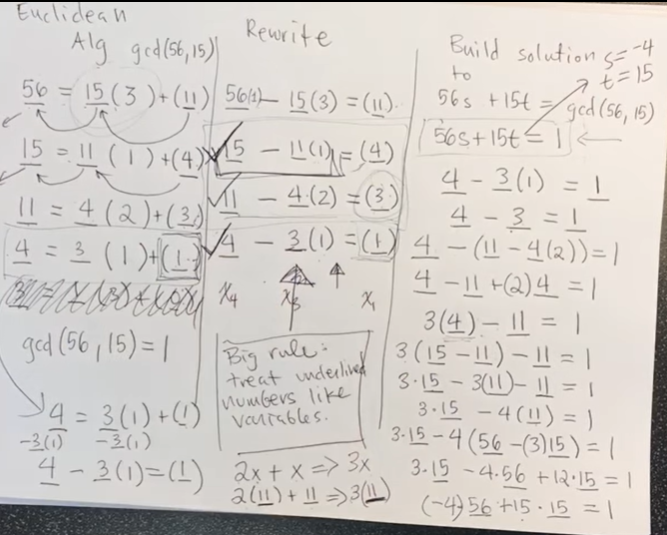 Euclidean
Alg gcd(56,15)
56 = 15(3)+(11)
15 = 11(1)+(4)
11 = 4(2)+(3)
4 = 3(1)+(1)
gcd(56,15)=1
4 = 3(1)+(1)
-3(1) -3(1)
4 - 3(1)=(1)
Rewrite
56(1) - 15(3) = (11)
15 - 11(1) = (4)
11 - 4(2) = (3)
4 - 3(1) = (1)
x4 x3 x1
Big rule:
treat underlined
numbers like
variables.
2x + x => 3x
2(11) + 11 => 3(11)
Build solution
to
s=-4
t=15
56s + 15t = gcd(56,15)
56s+15t = 1
4 - 3(1) = 1
4 - 3 = 1
4 - (11 - 4(2)) = 1
4 - 11 + (2)4 = 1
3(4) - 11 = 1
3(15 - 11) - 11 = 1
3·15 - 3(11) - 11 = 1
3·15 - 4(11) = 1
3·15 - 4(56 - (3)15) = 1
3·15 - 4·56 + 12·15 = 1
(-4)56 + 15·15 = 1